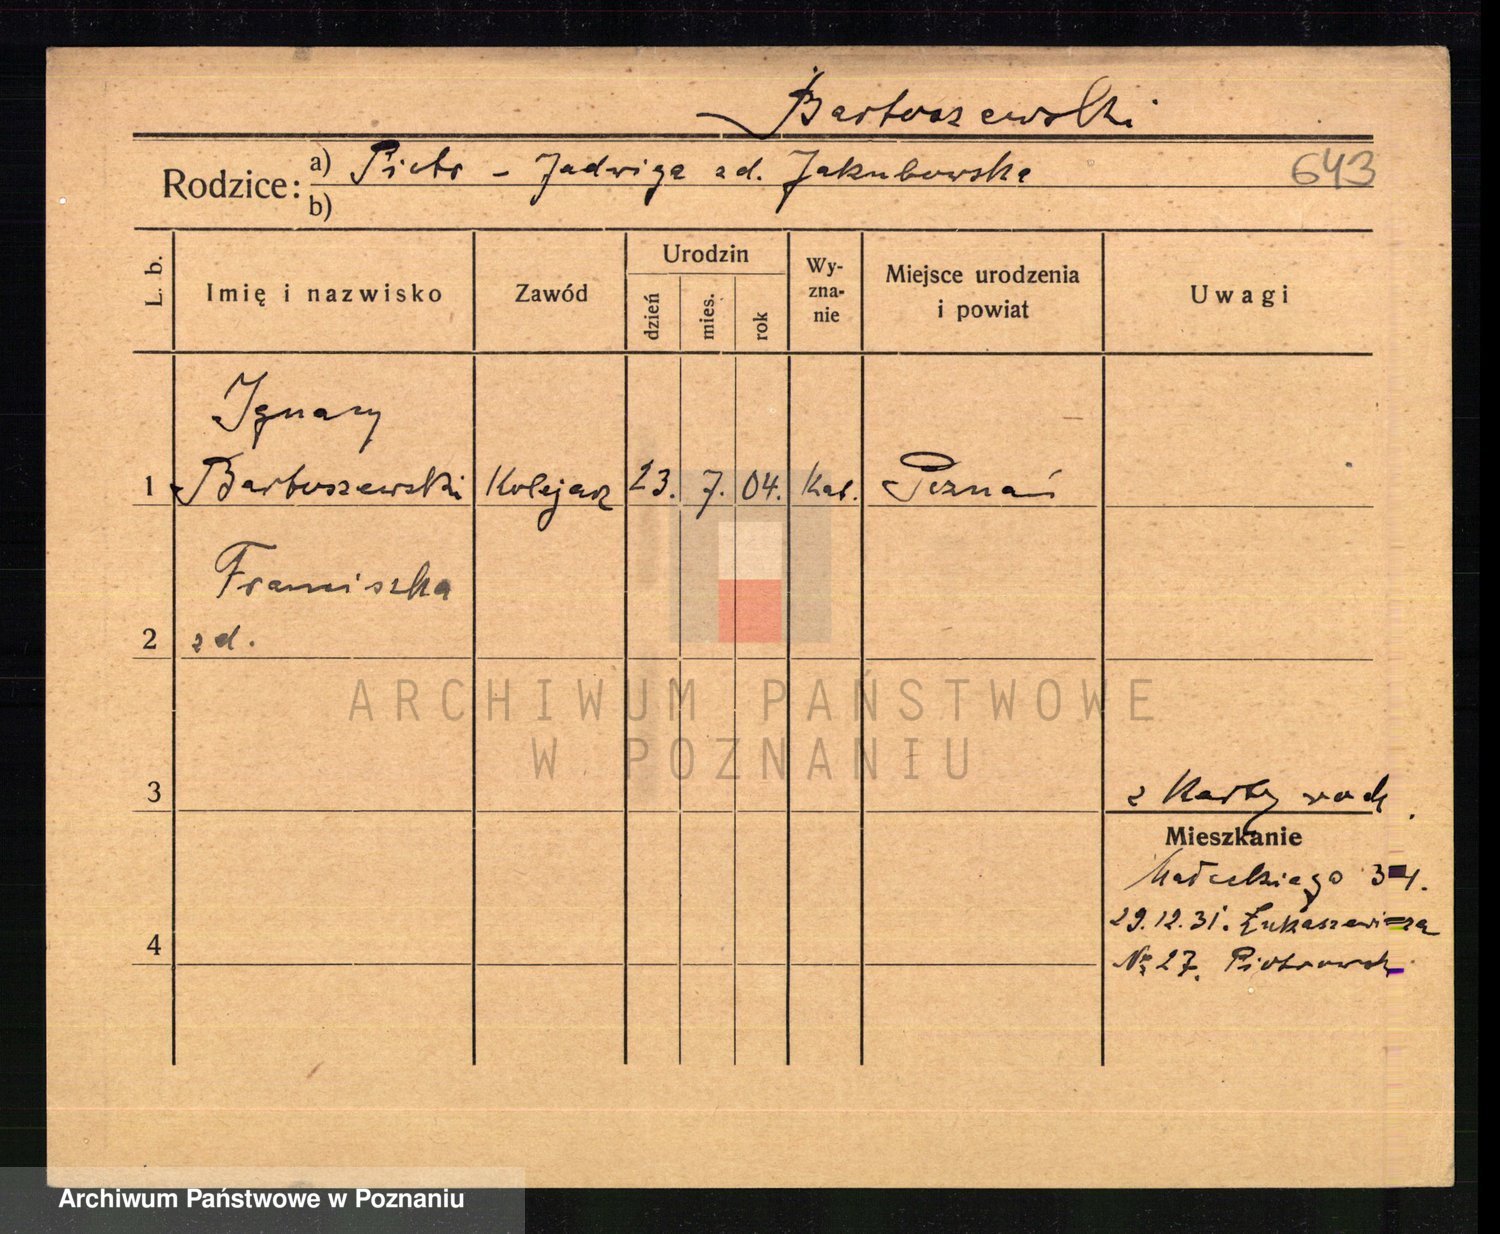 Bartoszewski
Rodzice: a) Piotr - Jadwiga zd. Jakubowska 643
b)
L. b. Imię i nazwisko Zawód Urodzin dzień mies. rok Wy-zna-nie Miejsce urodzenia i powiat Uwagi
Ignacy
1 Bartoszewski Kolejarz 23. 7. 04. Kat. Poznań
Franciszka
2 zd.
ARCHIWUM PAŃSTWOWE
W POZNANIU
3 z Karty rodz.
Mieszkanie
Małeckiego 34.
29.12.31. Łukaszewicza
4
Nr 27. Piotrowsk
Archiwum Państwowe w Poznaniu